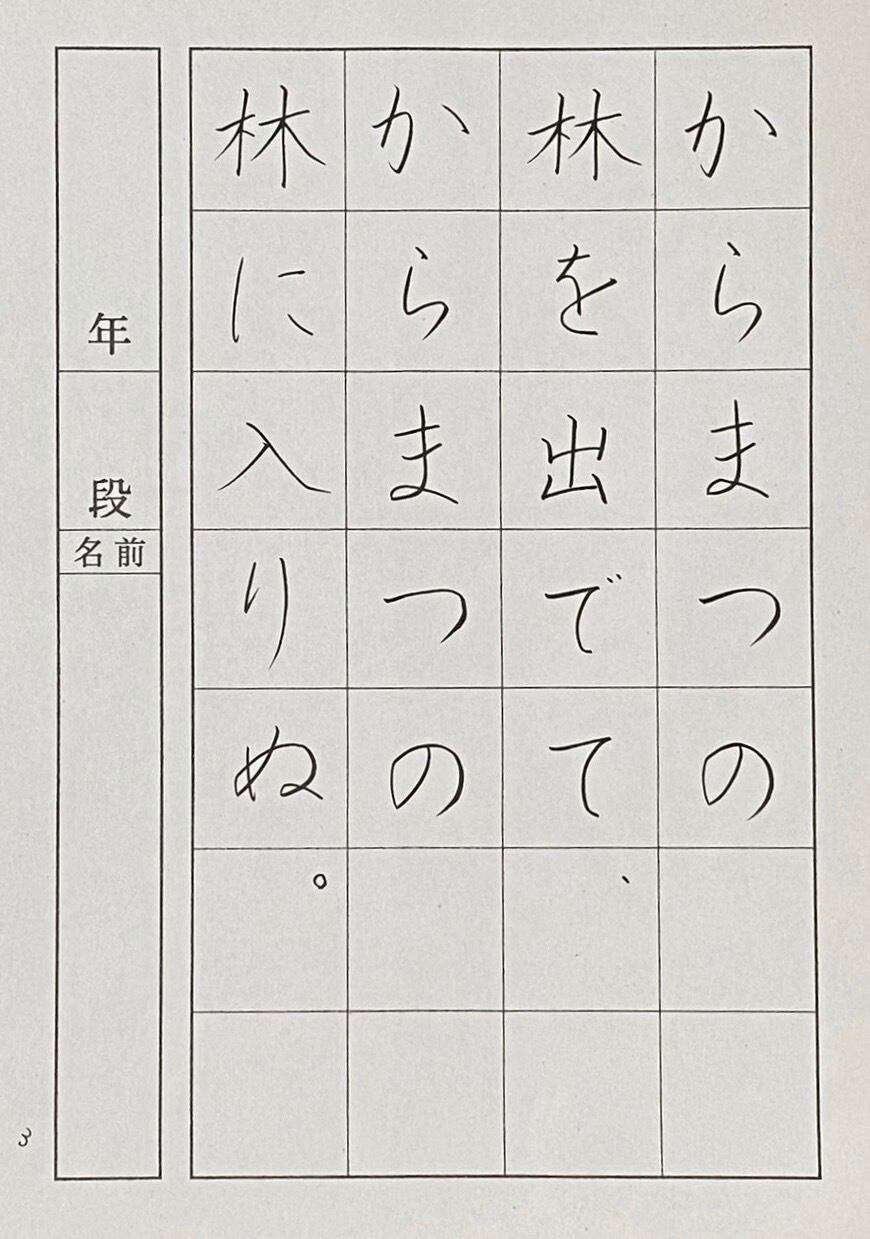 からまつの
林を出でて、
からまつの
林に入りぬ。
年
段
名前
3